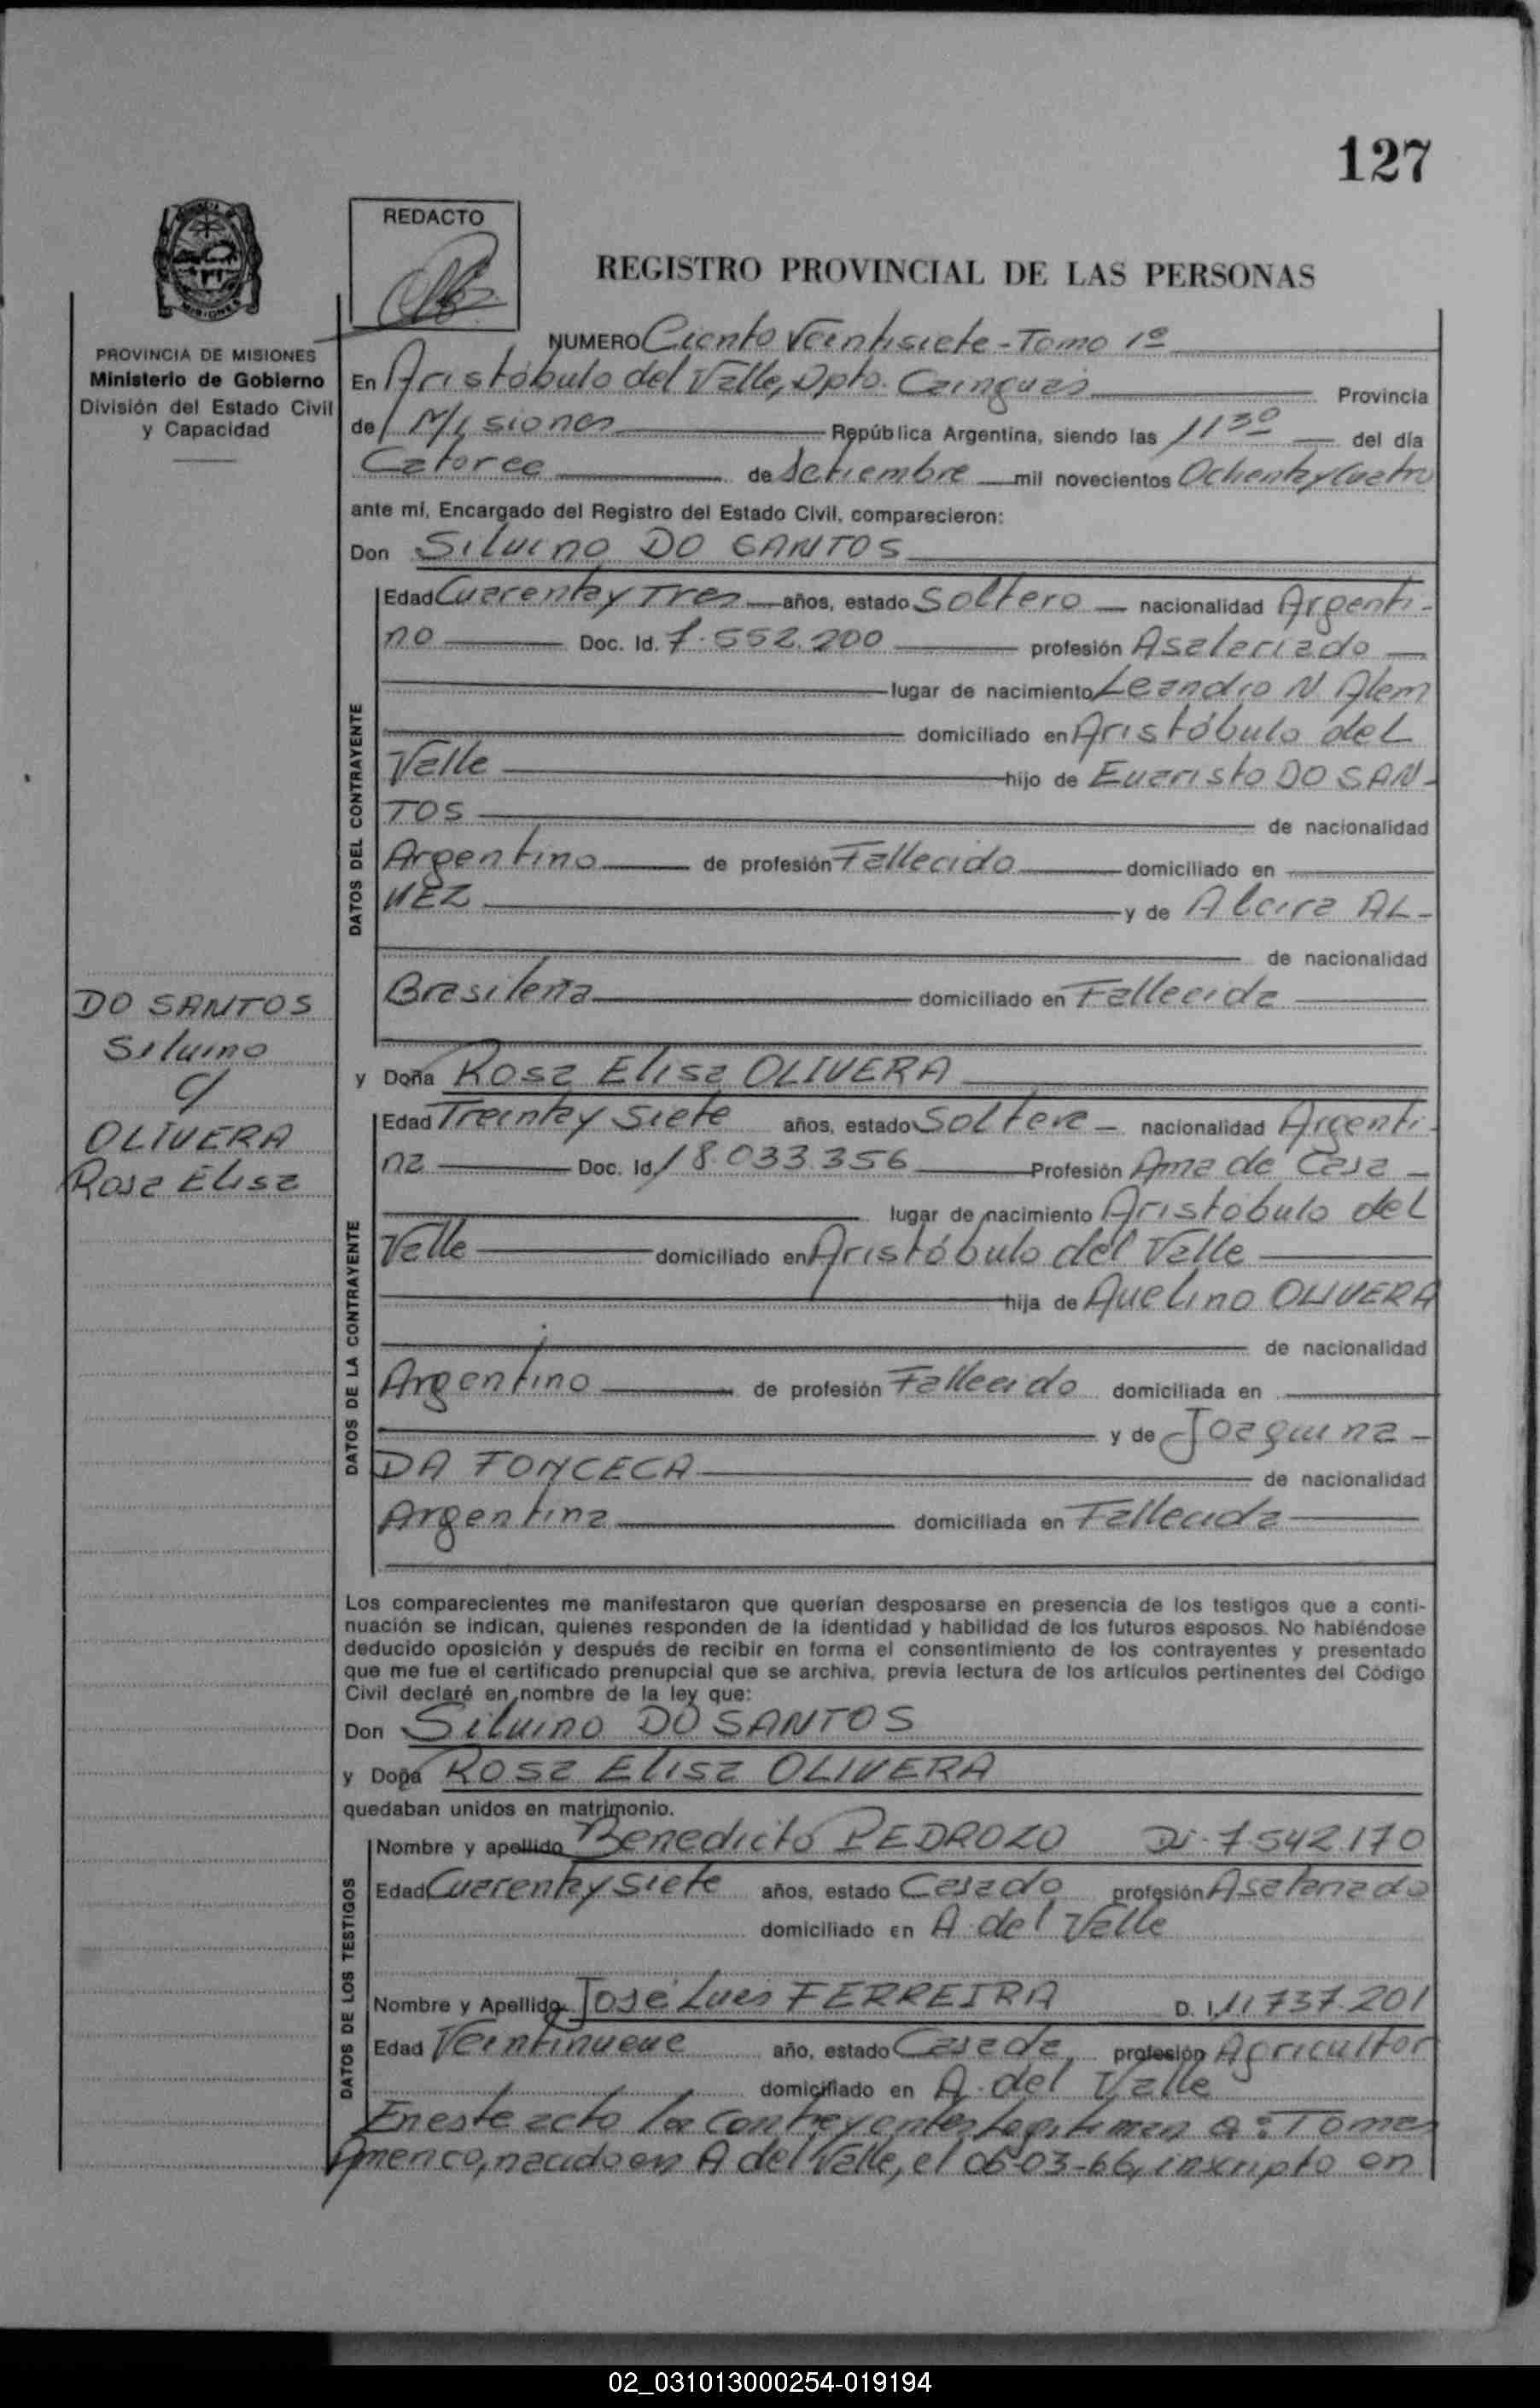 127
REDACTO
REGISTRO PROVINCIAL DE LAS PERSONAS
PROVINCIA DE MISIONES
Ministerio de Gobierno
División del Estado Civil
y Capacidad
DO SANTOS
Silvino
c/
OLIVERA
Rosa Elisa
NUMERO Ciento Veintisiete - Tomo 1º
En Aristóbulo del Valle, Dpto. Cainguás Provincia
de Misiones República Argentina, siendo las 11 30 del día
Catorce de Setiembre mil novecientos Ochenta y Cuatro
ante mí, Encargado del Registro del Estado Civil, comparecieron:
Don Silvino DO SANTOS
DATOS DEL CONTRAYENTE
Edad Cuarenta y Tres años, estado Soltero nacionalidad Argenti-
no Doc. Id. 7.552.200 profesión Asalariado
lugar de nacimiento Leandro N. Alem
domiciliado en Aristóbulo del
Valle hijo de Evaristo DO SAN-
TOS de nacionalidad
Argentino de profesión Fallecido domiciliado en
VEZ y de Alcira AL-
de nacionalidad
Brasileña domiciliado en Fallecida
y Doña Rosa Elisa OLIVERA
DATOS DE LA CONTRAYENTE
Edad Treinta y Siete años, estado Soltera nacionalidad Argenti-
na Doc. Id. 18.033.356 Profesión Ama de Casa
lugar de nacimiento Aristóbulo del
Valle domiciliado en Aristóbulo del Valle
hija de Avelino OLIVERA
de nacionalidad
Argentino de profesión Fallecido domiciliada en
y de Joaquina
DA FONCECA de nacionalidad
Argentina domiciliada en Fallecida
Los comparecientes me manifestaron que querían desposarse en presencia de los testigos que a conti-
nuación se indican, quienes responden de la identidad y habilidad de los futuros esposos. No habiéndose
deducido oposición y después de recibir en forma el consentimiento de los contrayentes y presentado
que me fue el certificado prenupcial que se archiva, previa lectura de los artículos pertinentes del Código
Civil declaré en nombre de la ley que:
Don Silvino DO SANTOS
y Doña Rosa Elisa OLIVERA
quedaban unidos en matrimonio.
DATOS DE LOS TESTIGOS
Nombre y apellido Benedicto PEDROZO Di. 7.542.170
Edad Cuarenta y Siete años, estado Casado profesión Asalariado
domiciliado en A. del Valle
Nombre y Apellido José Luis FERREIRA D. I. 11.737.201
Edad Veintinueve año, estado Casado profesión Agricultor
domiciliado en A. del Valle
En este acto los contrayentes legitiman a: Tomas
Americo, nacido en A del Valle, el 06-03-66, inscripto en
02_031013000254-019194